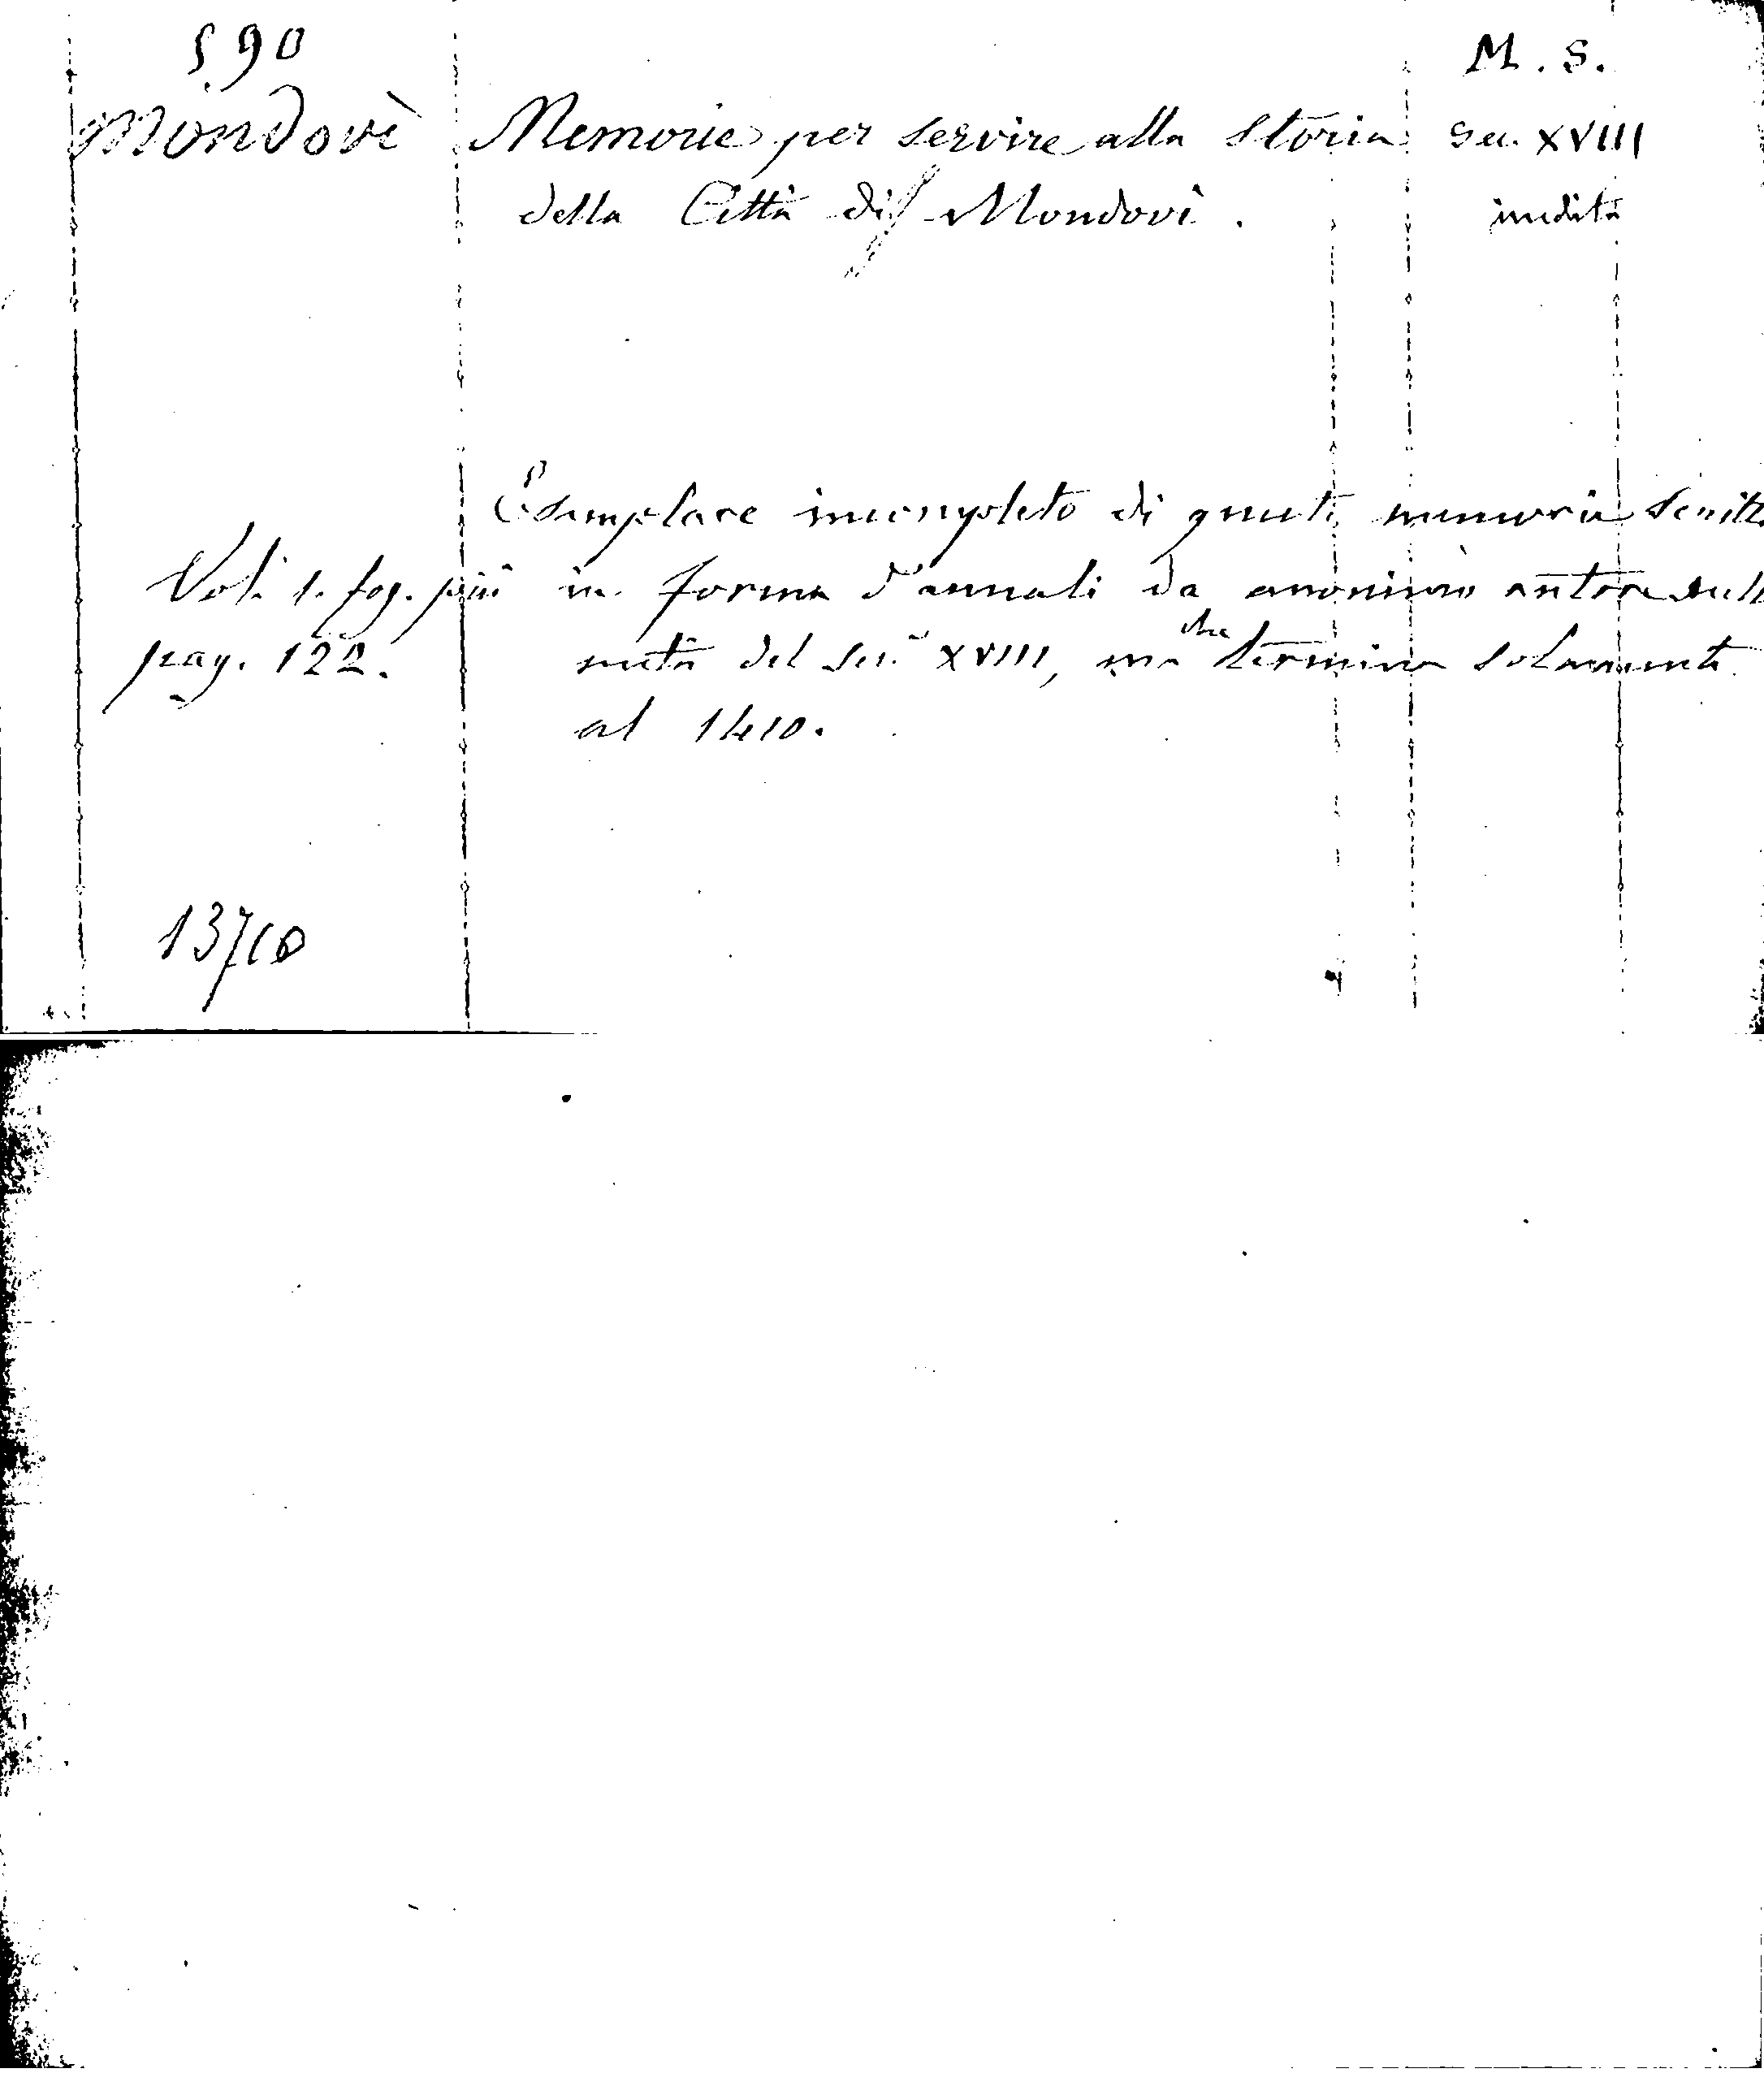 590 M. S.
Mondovì Memorie per servire alla Storia sec. XVIII
della Città di Mondovì. inedita
Esemplare incompleto di queste memorie scritte
Vol. 1. fog. più in forma d'annali da anonimo autore nella
pag. 122. metà del sec. XVIII, ma che termina solamente
al 1410.